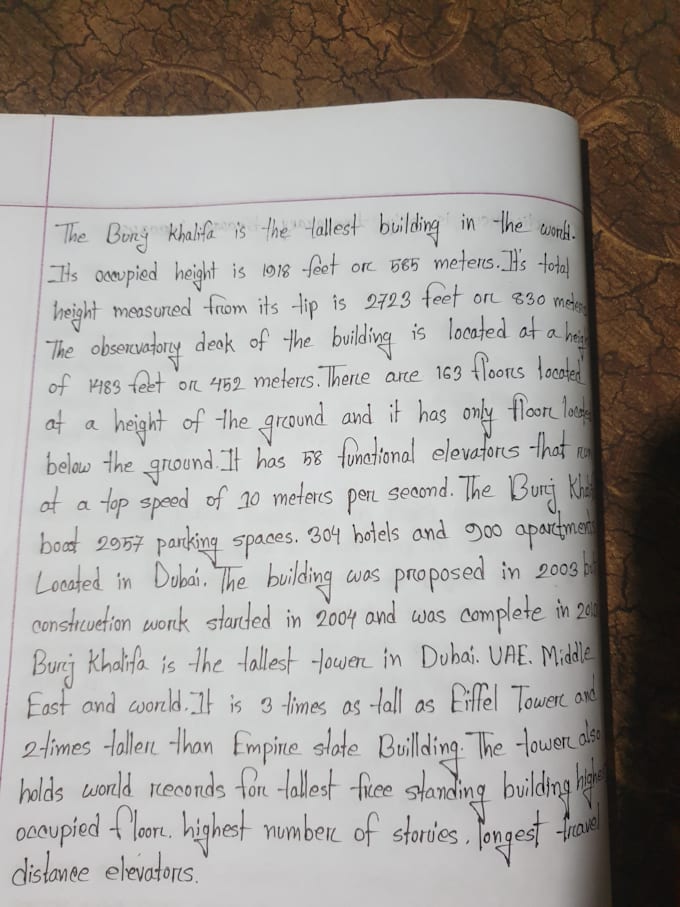 The Burj Khalifa is the tallest building in the world.
Its occupied height is 1918 feet or 585 meters. It's total
height measured from its tip is 2723 feet or 830 meters
The observatory deck of the building is located at a heigh
of 1483 feet or 452 meters. There are 163 floors located
at a height of the ground and it has only floor located
below the ground. It has 58 functional elevators that run
at a top speed of 10 meters per second. The Burj Khal
boat 2957 parking spaces. 304 hotels and 900 apartments
Located in Dubai. The building was proposed in 2003 but
construction work started in 2004 and was complete in 2010
Burj Khalifa is the tallest tower in Dubai. UAE. Middle
East and world. It is 3 times as tall as Eiffel Tower and
2 times taller than Empire state Buillding. The tower also
holds world records for tallest free standing building highes
occupied floor. highest number of stories. longest travel
distance elevators.